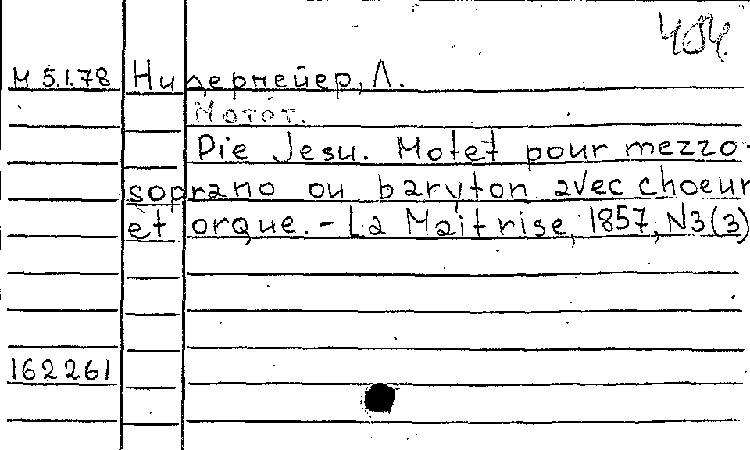 484.
М 5.1.78 Нидермейер, Л.
Мотет.
Pie Jesu. Motet pour mezzo-
soprano ou baryton avec choeur
et orque. - La Maitrise, 1857, N3(3)
162261